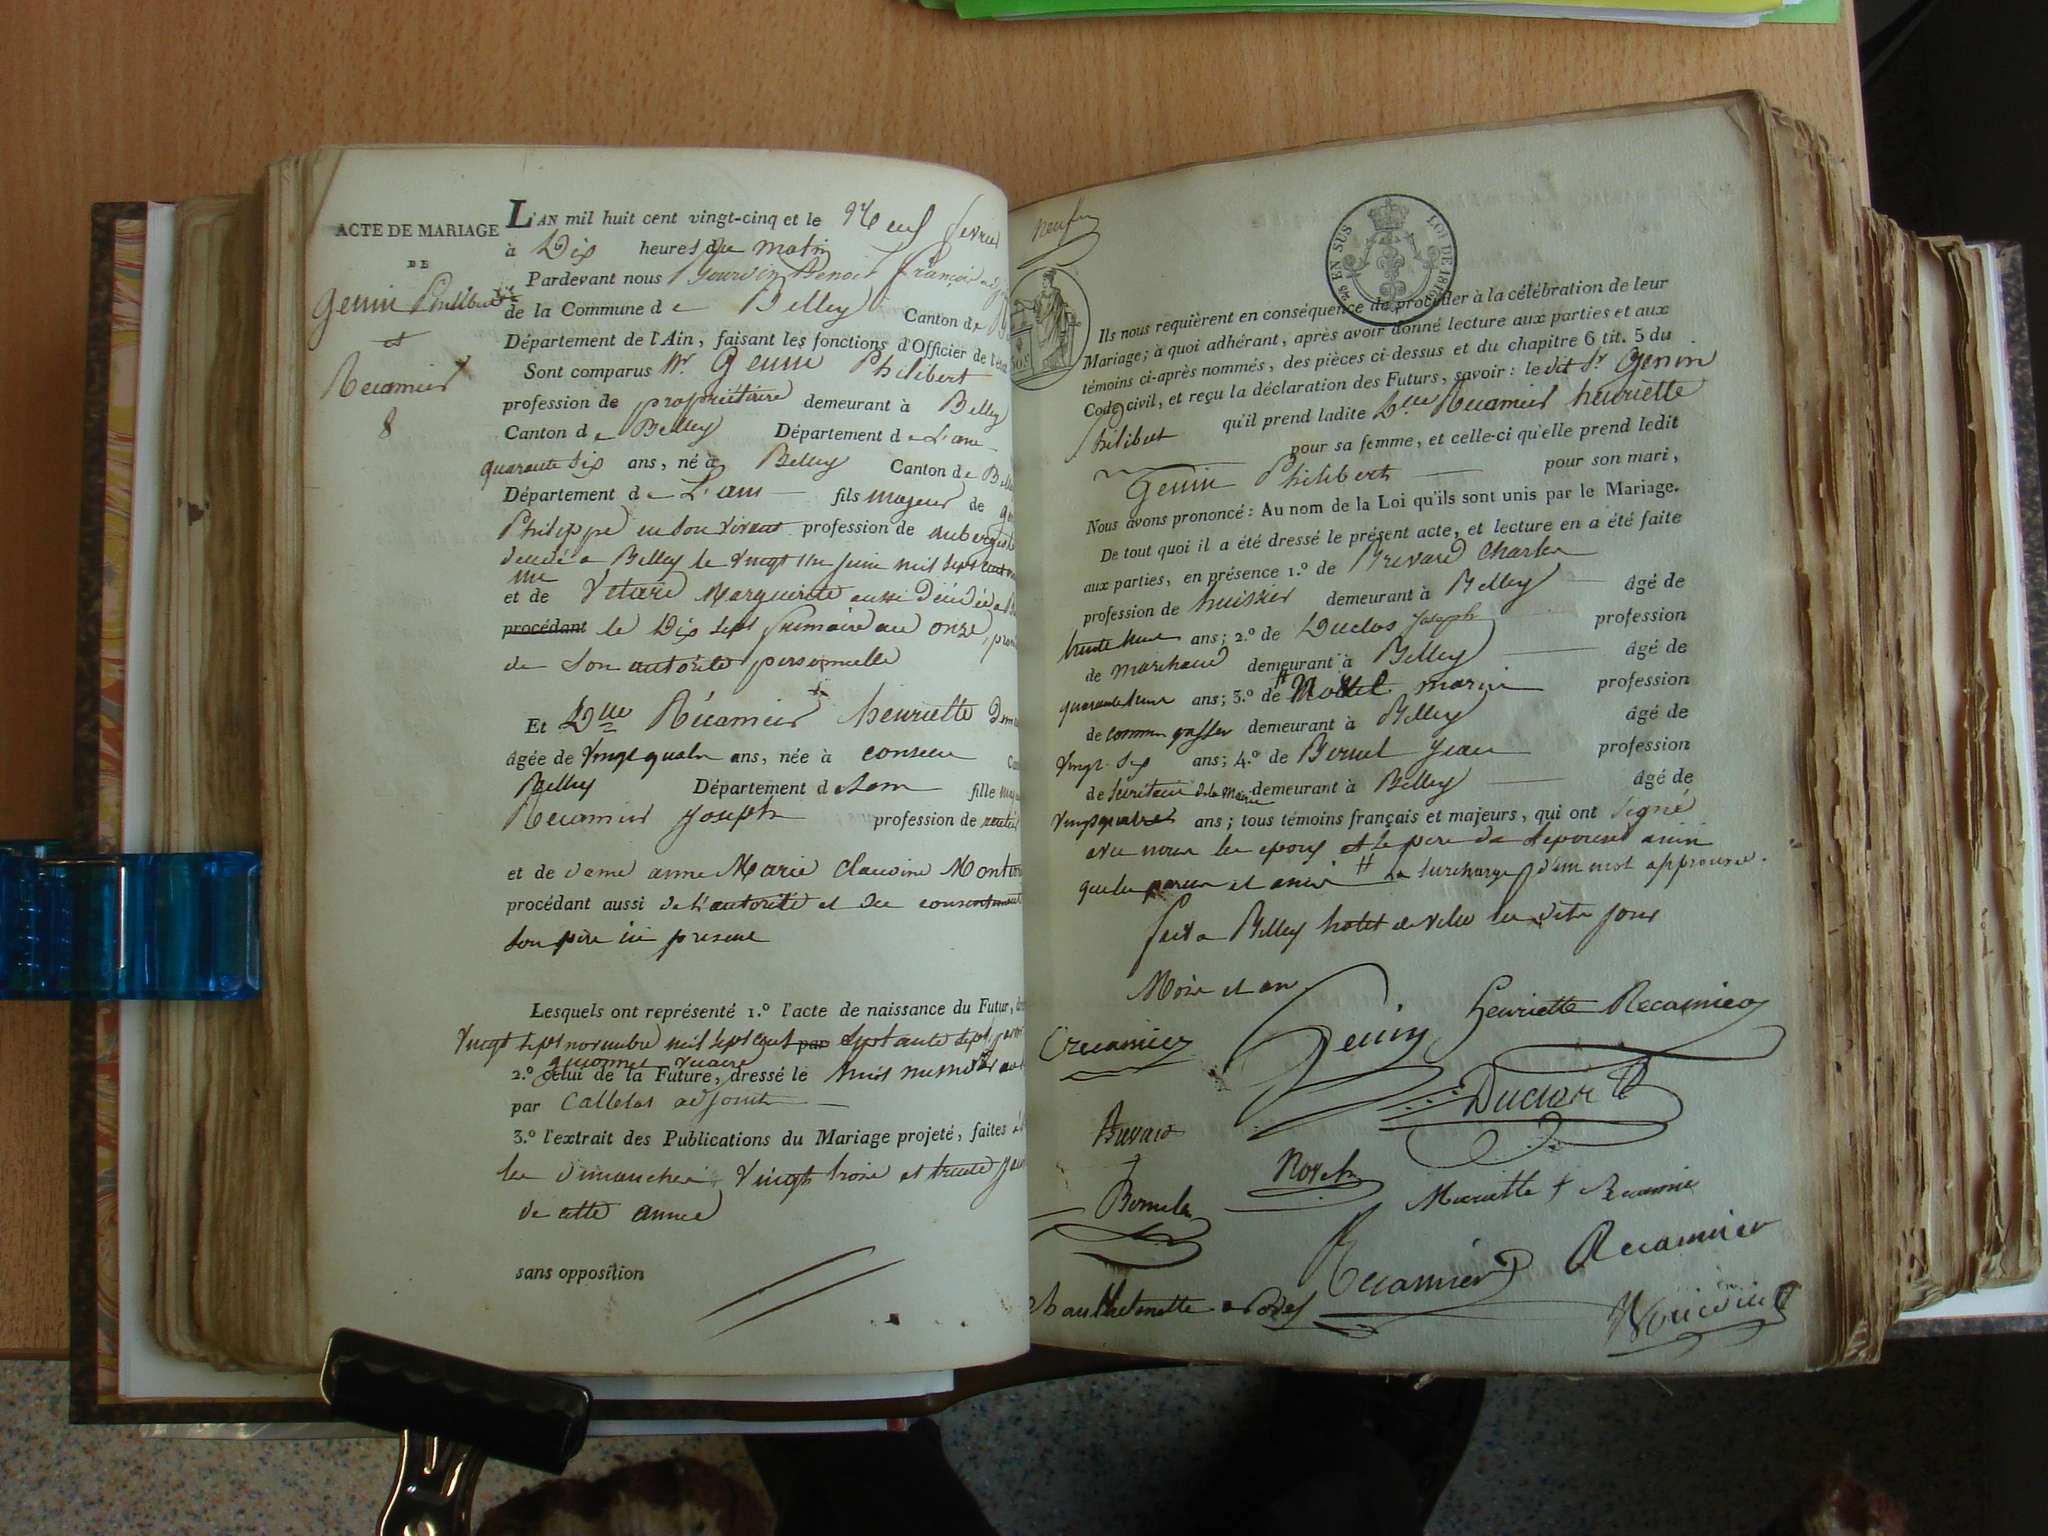 ACTE DE MARIAGE
DE
Genin Philibert
et
Recamier
8
L'AN mil huit cent vingt-cinq et le Neuf fevrier
à Dix heures du matin
Pardevant nous Benoit françois
de la Commune de Belley Canton de
Département de l'Ain, faisant les fonctions d'Officier de l'état
Sont comparus Mr. Genin Philibert
profession de propriétaire demeurant à Belley
Canton de Belley Département de L'ain
quarante Six ans, né à Belley Canton de
Département de L'ain fils majeur de
Philippe en son vivant profession de aubergiste
décédé a Belley le vingt un juin mil sept cent
et de Marguerite aussi Décédée a
procédant le Dix Sept frimaire an onze,
de Son autorité personnelle
Et Dlle Récamier henriette
âgée de vingt quatre ans, née à
Belley Département de Lain fille
Recamier Joseph profession de rentier
et de dame anne Marie Claudine
procédant aussi de l'autorité et du consentement
Son père ici present
Lesquels ont représenté 1.º l'acte de naissance du Futur,
Vingt Sept novembre mil Sept cent par Septante Sept,
vicaire
2.º celui de la Future, dressé le huit
par Callelas adjoint
3.º l'extrait des Publications du Mariage projeté, faites
les dimanches vingt trois et trente
de cette année
sans opposition
neuf
25 EN SUS LOI DE 1816
50.c
Ils nous requièrent en conséquence de procéder à la célébration de leur
Mariage; à quoi adhérant, après avoir donné lecture aux parties et aux
témoins ci-après nommés, des pièces ci-dessus et du chapitre 6 tit. 5 du
Code civil, et reçu la déclaration des Futurs, savoir: le dit Sr. Genin
Philibert qu'il prend ladite Dlle Recamier henriette
pour sa femme, et celle-ci qu'elle prend ledit
Genin Philibert pour son mari,
Nous avons prononcé: Au nom de la Loi qu'ils sont unis par le Mariage.
De tout quoi il a été dressé le présent acte, et lecture en a été faite
aux parties, en présence 1.º de Brevard Charles
profession de huissier demeurant à Belley âgé de
trente neuf ans; 2.º de Duclos Joseph profession
de marchand demeurant à Belley âgé de
quarante neuf ans; 3.º de marin profession
de demeurant à Belley âgé de
vingt Six ans; 4.º de Jean profession
de Secrétaire de la Mairie demeurant à Belley âgé de
vingt quatre ans; tous témoins français et majeurs, qui ont signé
avec nous les epoux et le pere de l'epouse ainsi
que les parens et amis la Surcharge d'un mot approuvé.
fait a Belley hotel de ville les dits jour
Mois et an
Genin
Henriette Recamier
Recamier
Duclos
Brevard
Recamier
Recamier